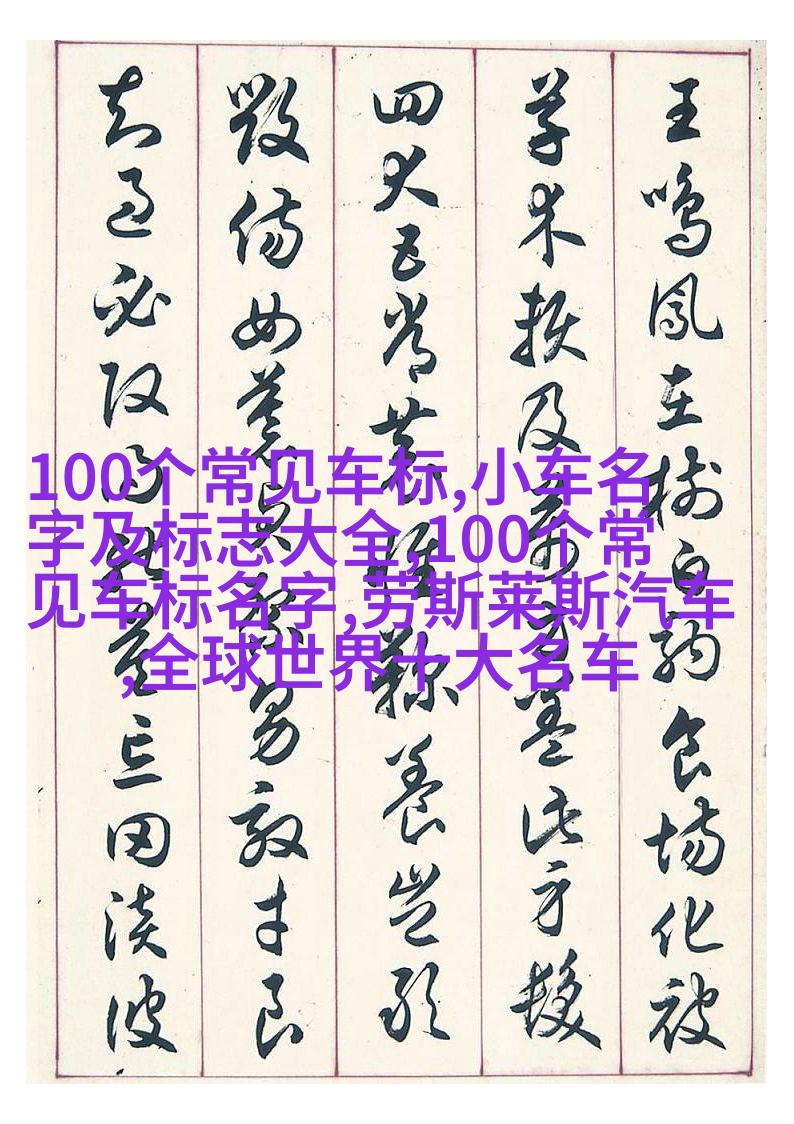 王鳴鳳在樹白駒食場化被
草木賴及萬方蓋此身髮
四大五常恭惟鞠養豈敢
毀傷女慕貞絜男效才良
知過必改得能莫忘罔談彼
100个常见车标,小车名
字及标志大全,100个常
见车标名字,劳斯莱斯汽车
,全球世界十大名车